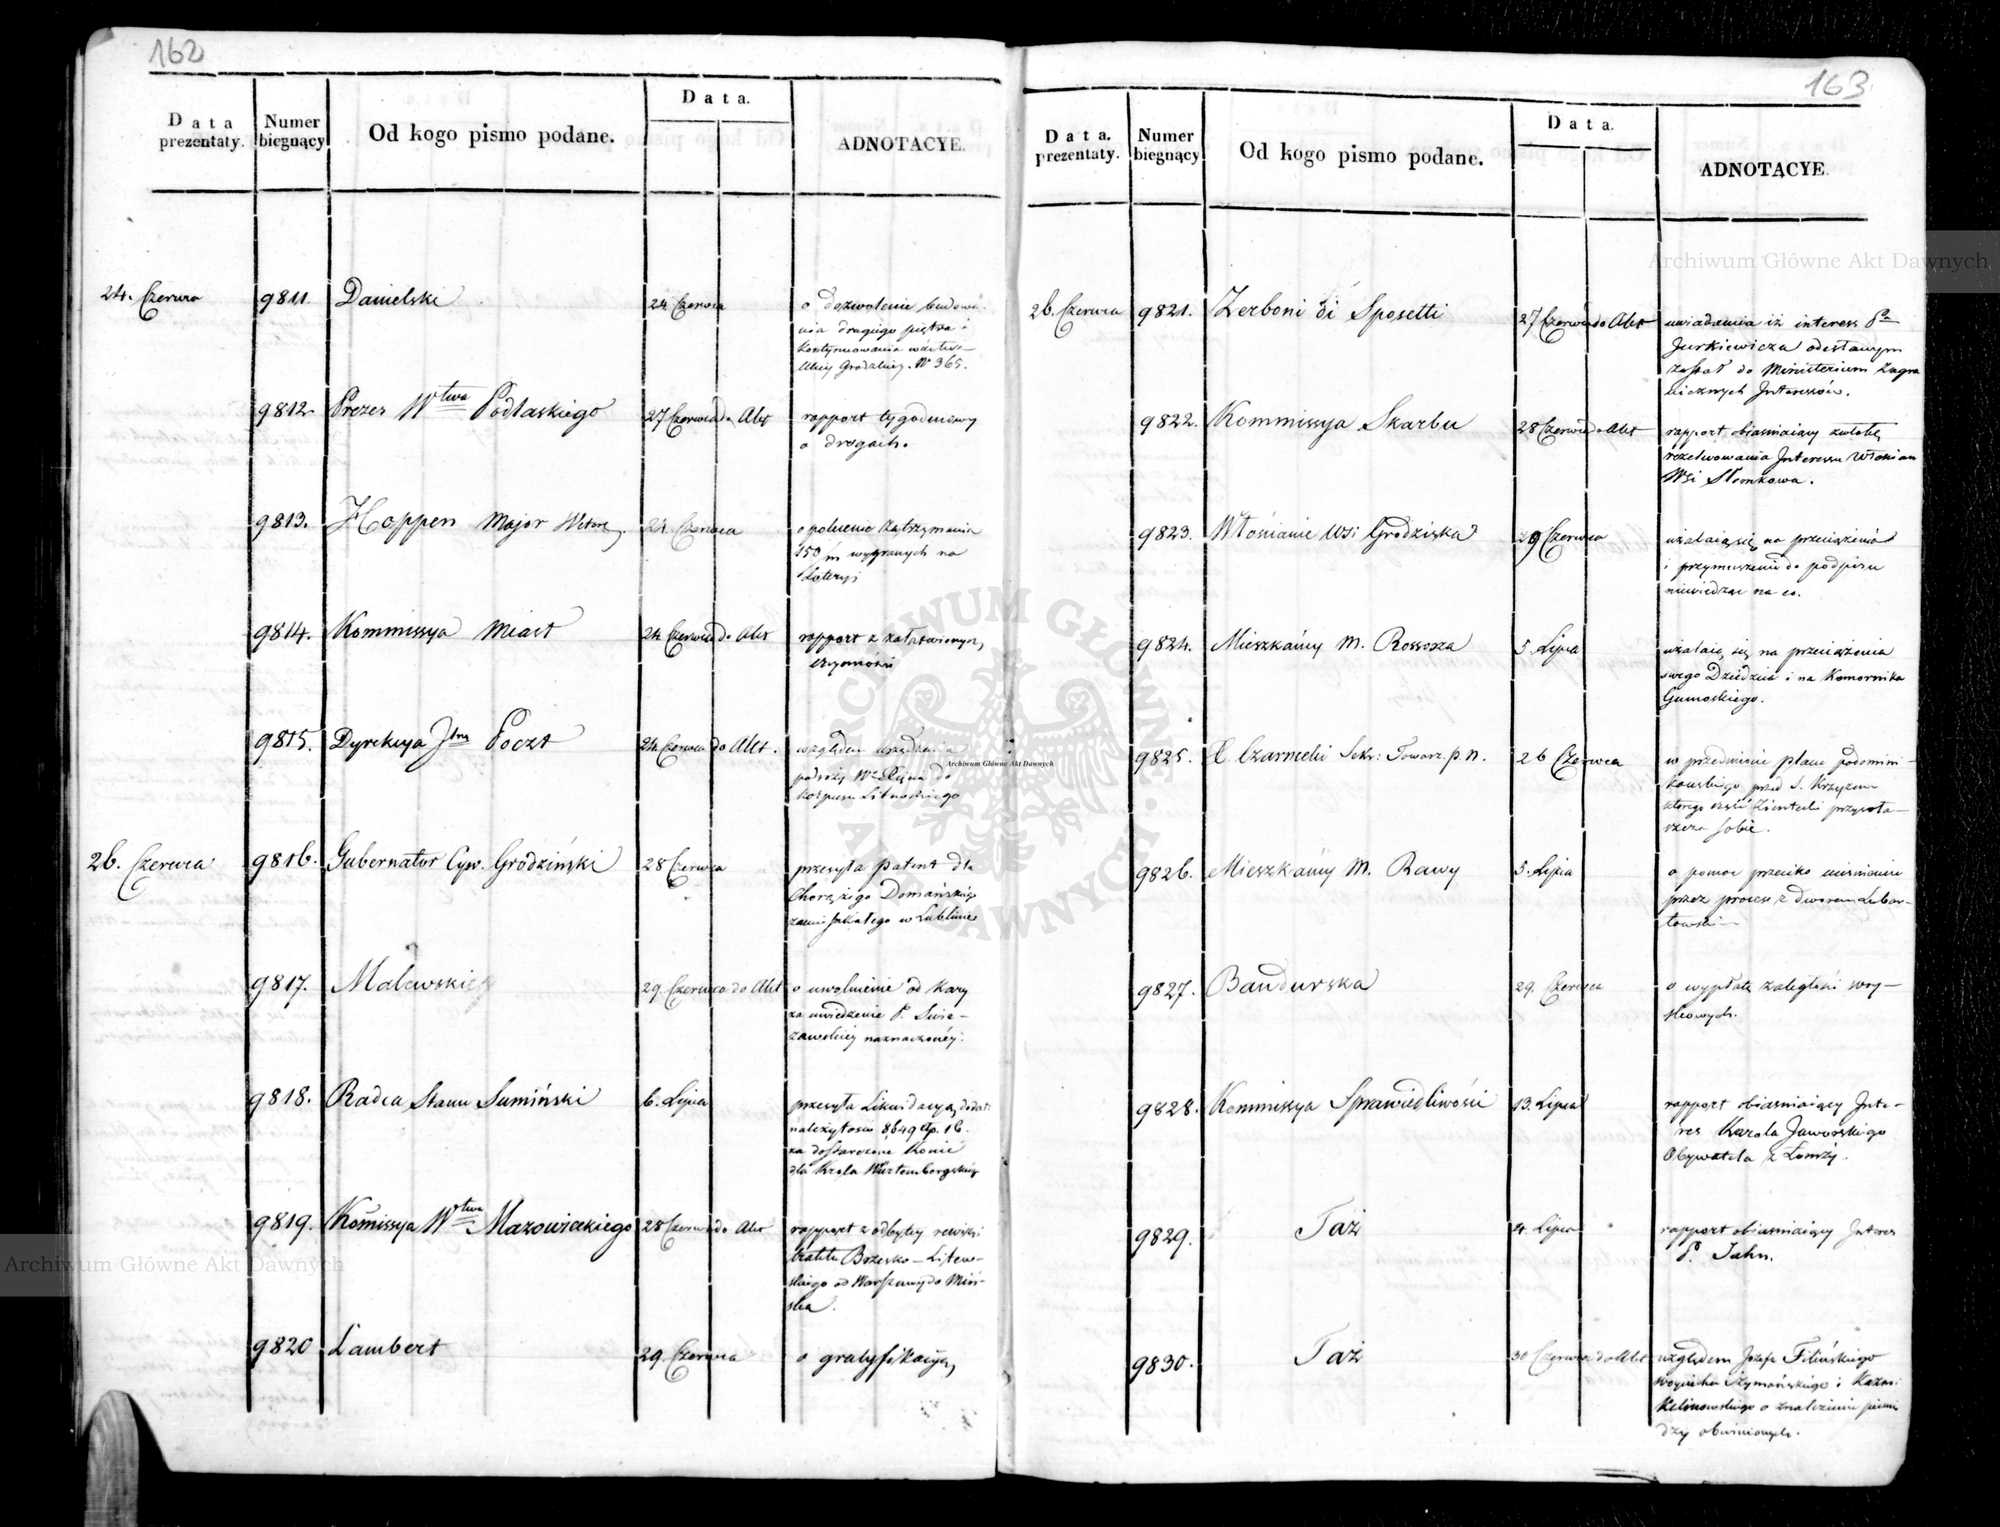 162
Data prezentaty.
Numer biegnący
Od kogo pismo podane.
Data.
ADNOTACYE.
24. Czerwca
9811.
Danielski
24 Czerwca
o dozwolenie budowa-
nia drugiego piętra i
kontynuowania
ulicy Grodzkiey. N 365.
9812.
Prezes Wtwa Podlaskiego
27 Czerwca do Akt
rapport tygodniowy
o drogach.
9813.
Hoppen Major
24 Czerwca
o polecenie zatrzymania
150 m wygranych na
Loteryi
9814.
Kommissya Miast
24 Czerwca do Akt
rapport z załatwionych
czynności
9815.
Dyrekcya Jlna Poczt
24 Czerwca do Akt.
względem urządzenia
podróży Wo Xięcia do
korpusu Litewskiego
26. Czerwca
9816.
Gubernator Cyw. Grodziński
28 Czerwca
przesyła patent dla
Chorążego Domańskiego
zamieszkałego w Lublinie
9817.
Malewski
29. Czerwca do Akt
o uwolnienie od kary
za uwiedzenie P. Swie-
zawskiéy naznaczonéy.
9818.
Radca Stanu Sumiński
6. Lipca
przesyła Likwidacyą
należytości 8,649 Zp. 16.
za dostarczone Konie
dla Króla Würtembergskiego
9819.
Komissya Wtwa Mazowieckiego
28 Czerwca do Akt
rapport z odbytey rewizyi
traktu Brzesko-Litew-
skiego od Warszawy do Miń-
ska.
9820
Lambert
29. Czerwca
o gratyfikacyą
163
Data. prezentaty.
Numer biegnący
Od kogo pismo podane.
Data.
ADNOTACYE.
26. Czerwca
9821.
Zerboni di Sposetti
27 Czerwca do Akt
uwiadamia iż interess Pa
Jurkiewicza odesłanym
został do Ministerium Zagra
nicznych Interessów.
9822.
Kommissya Skarbu
28 Czerwca do Akt
rapport obiasniaiący zwłokę
rozstrzygnięcia Interessu Włościan
Wsi Słomkowa.
9823.
Włościanie Wsi Grodziska
29 Czerwca
użalaią się na przeciążenia
i przymuszenie do podpisu
niewiedząc na co.
9824.
Mieszkańcy M. Rossosza
5. Lipca
użalaią się na przeciążenia
swego Dziedzica i na Komornika
Gumoskiego.
9825.
X. Czarnecki Sekr: Towarz. p. n.
26 Czerwca
w przedmiocie placu podomini-
kanskiego przed S. Krzyżem
którego część Zientecki przywła-
szcza sobie.
9826.
Mieszkańcy M. Rawy
5. Lipca
o pomoc przeciwko uciśnieniu
przez proces z dworem Lubar-
towskim
9827.
Bandurska
29. Czerwca
o wypłatę zaległości woy-
skowych.
9828.
Kommissya Sprawiedliwości
13. Lipca
rapport obiasniaiący Inte-
res Karola Jaworskiego
Obywatela z Łomży.
9829.
Taż
4. Lipca
rapport obiasniaiący Interes
P. Jahn.
9830.
Taż
30 Czerwca do Akt
względem Józefa Filińskiego
Woyciecha Szymańskiego i Kazm:
Kalinowskiego o znalezienie pienię
dzy obwinionych.
Archiwum Główne Akt Dawnych
Archiwum Główne Akt Dawnych
Archiwum Główne Akt Dawnych
ARCHIWUM GŁÓWNE AKT DAWNYCH